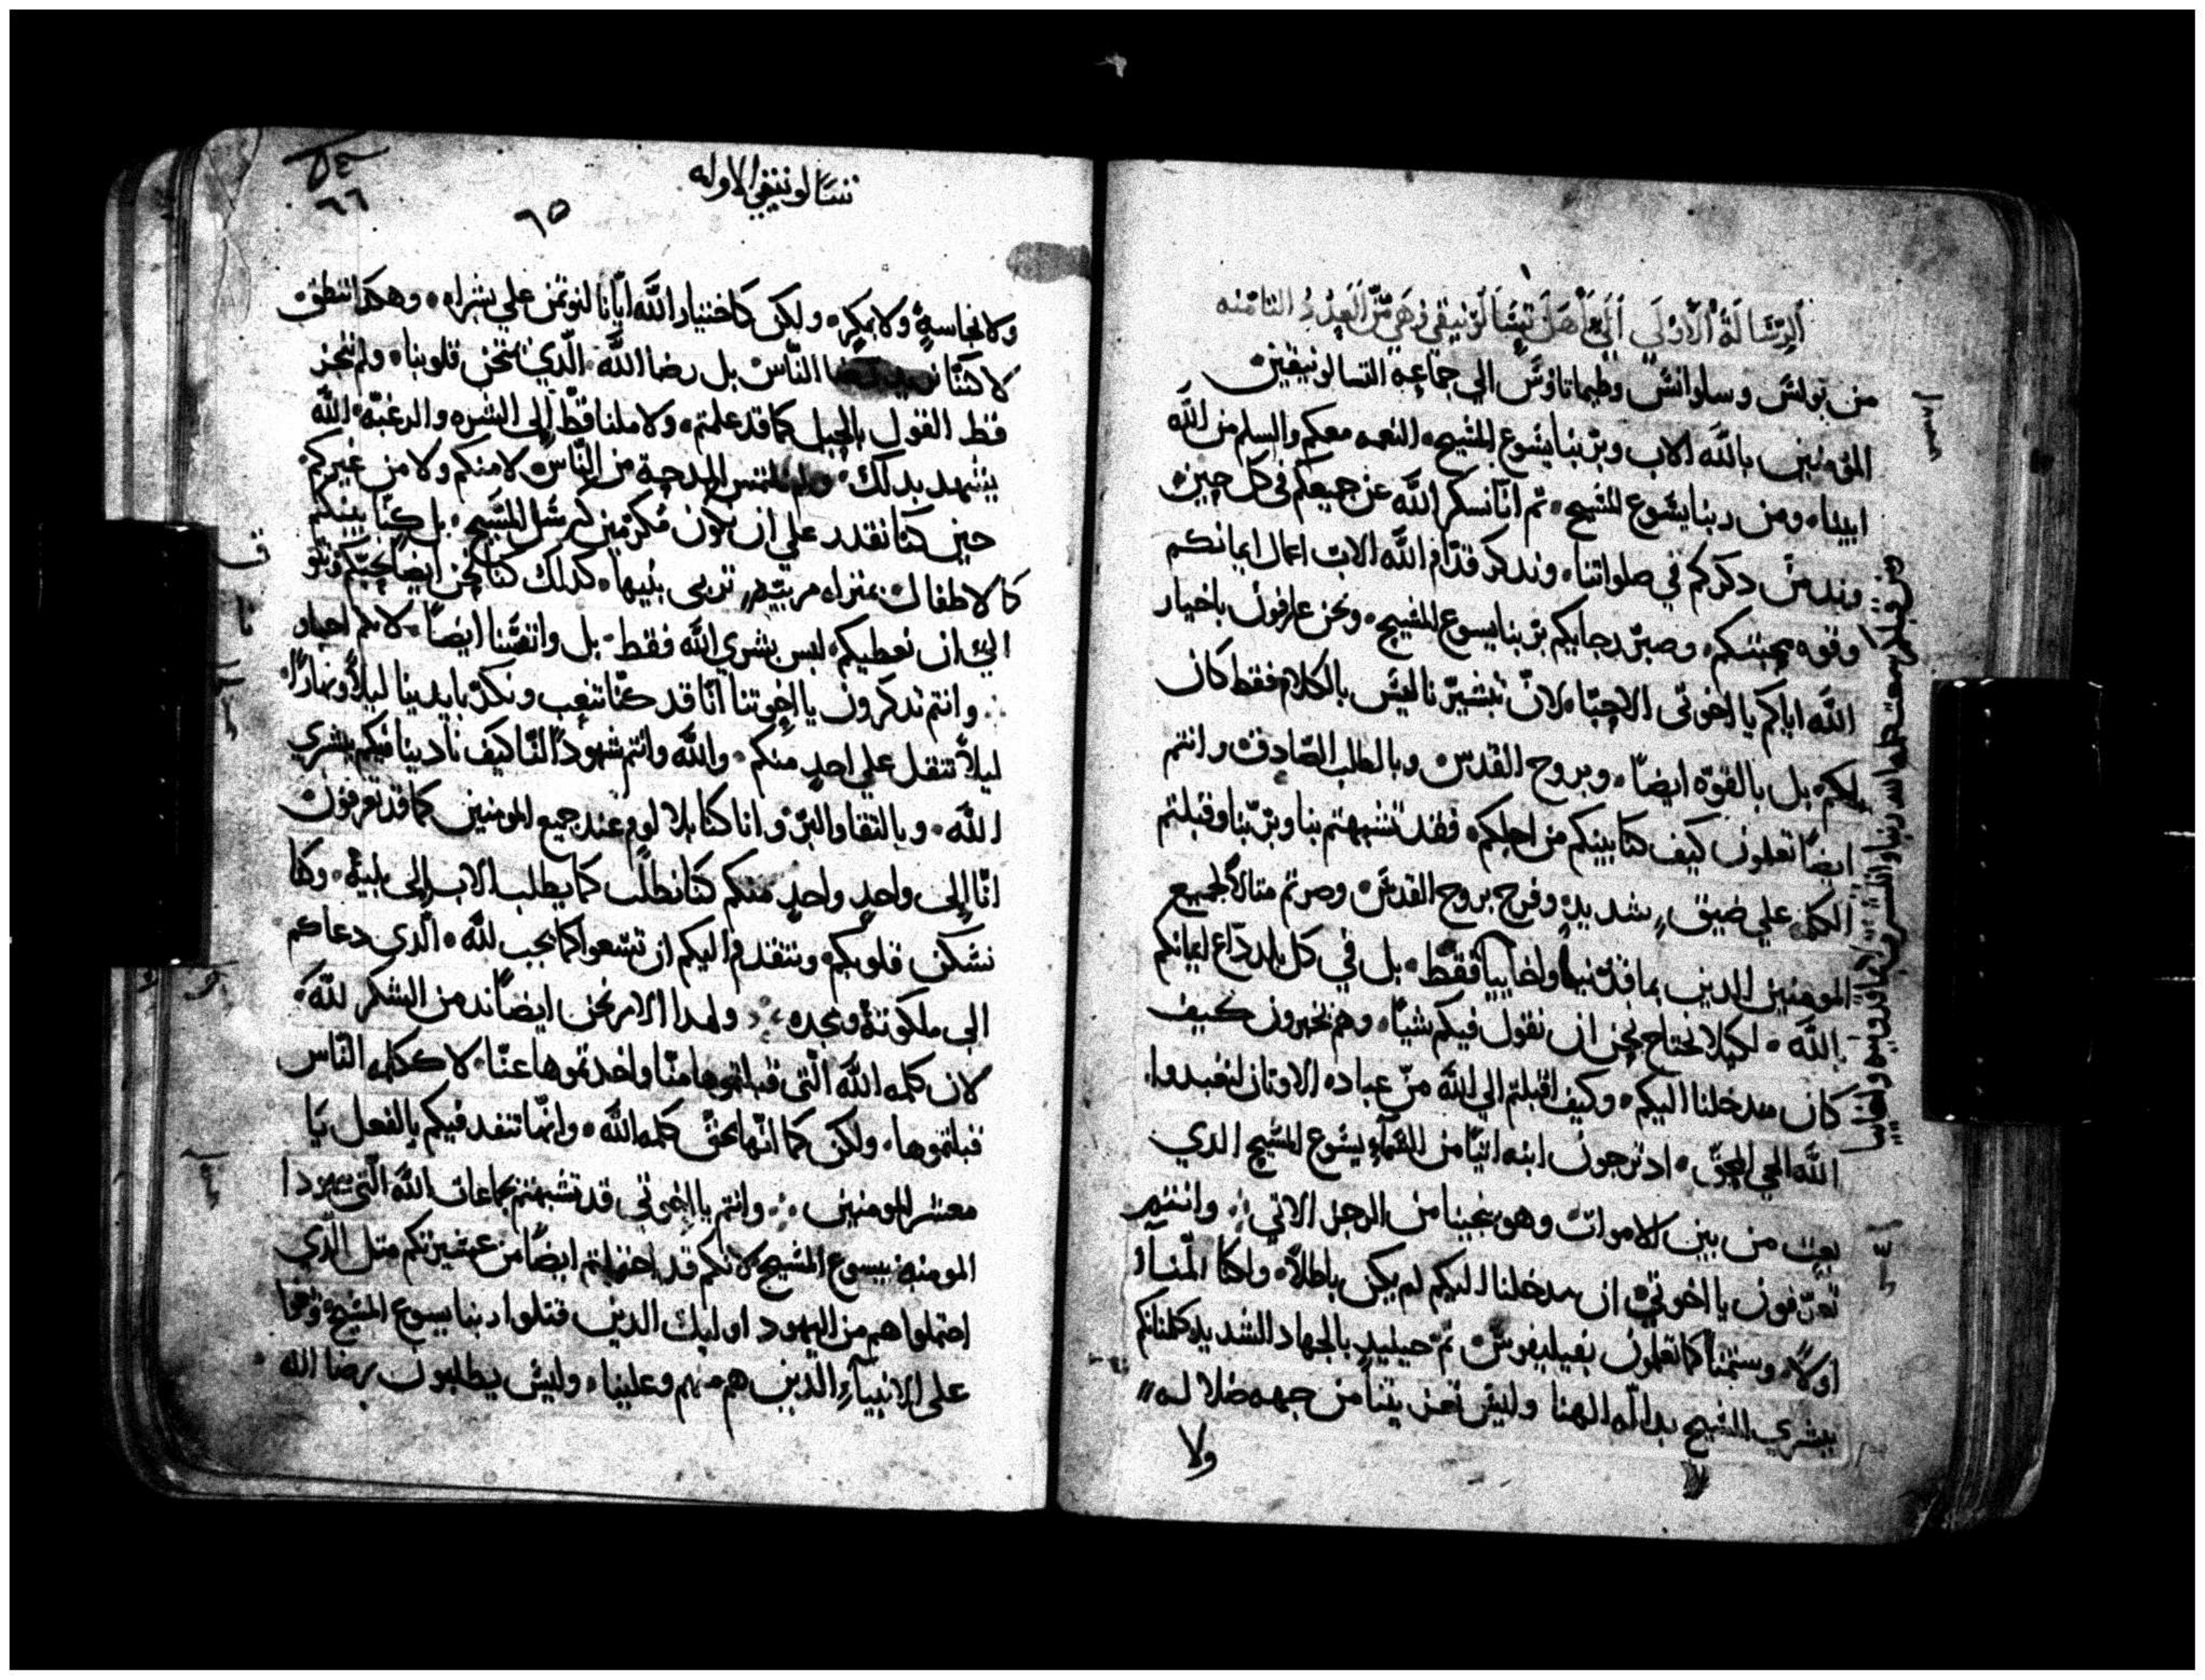 الرسالة الاولي الي اهل تسالونيقي وهي من العدد الثامنه
من بولس وسلوانس وطيماتاوس الي جماعة التسالونيقين
المؤمنين بالله الاب وبربنا يشوع المسيح النعمه معكم والسلم من الله
ابينا ومن ربنا يشوع المسيح ثم انا نسكر الله عن جميعكم في كل حين
وندمن دكركم في صلواتنا وندكر قدام الله الاب اعمال ايمانكم
وقوه محبتكم وصبر رجايكم بربنا يسوع المسيح ونحن عارفون باخيار
الله اياكم يا اخوتي الاحبا لان تبشيرنا ليس بالكلام فقط كان
لكم بل بالقوه ايضا وبروح القدس وبالطلب الصادق وانتم
ايضا تعلمون كيف كنا بينكم من اجلكم فقد تشبهتم بنا وبربنا وقبلتم
الكلمه علي ضيق شديد وفرح بروح القدس وصرتم مثالا لجميع
المومنين الدين بماقدنيا واخاييا فقط بل في كل بلد داع ايمانكم
بالله لكيلا نحتاج نحن ان نقول فيكم شيا وهم يخبرون كيف
كان مدخلنا اليكم وكيف اقبلتم الي الله من عباده الاوتان لتعبدوا
الله الحي المحق اد ترجون ابنه اتيا من السماء يشوع المسيح الدي
بعث من بين الاموات وهو ينجينا من الرجز الاتي وانتم
تعرفون يا اخوتي ان مدخلنا اليكم لم يكن باطلا ولكنا المنا
اولا وستمنا كما تعلمون بفيليفوس ثم حينيد بالجهاد الشديد كلمناكم
ببشري المسيح بدالة الهنا وليس تعزيتنا من جهه ضلاله
ولا
من قبلكم سمعت كلمه الله ربنا وانتشرت بماقدونيه واخاييا
تسالونيقي الاوله
٦٥
٥٤
٦٦
ولا نجاسة ولا بمكر ولكن كاختيار الله ايانا لنوتمن علي بشراه وهكدا ننطق
لا كننا الناس بل رضا الله الدي يمتحن قلوبنا ولم نتجز
قط القول بالجميل كما قد علمتم ولا ملنا قط الي الشره والرغبه الله
يشهد بدلك ولم نلتمس المدحة من الناس لا منكم ولا من غيركم
حين كنا نقدر علي ان نكون مكرمين كرسل المسيح بل كنا بينكم
كالاطفال بمنزله مربيه تربي بنيها كدلك كنا نحن ايضا نحبكم ونتو
الي ان نعطيكم ليس بشري الله فقط بل وانفسنا ايضا لانكم احباو
نا وانتم تدكرون يا اخوتنا انا قد كنا نتعب ونكد بايدينا ليلا ونهارا
ليلا نتقل علي احد منكم والله وانتم شهود لنا كيف نادينا فيكم بشري
الله وبالتقا والبر وانا كنا بلا لوم عند جميع المومنين كما قد تعرفون
انا إلى واحد واحد منكم كنا نطلب كما يطلب الاب إلى بنيه وكنا
نسكن قلوبكم ونتقدم اليكم ان تسعوا كما يجب لله الدي دعاكم
الى ملكوته ومجده ولهدا الامر نحن ايضا ندمن الشكر لله
لان كلمه الله التي قبلتموها منا واخدتموها عنا لا ككلمه الناس
قبلتموها ولكن كما انها بحق كلمه الله وانها تنفد فيكم بالفعل يا
معشر المومنين وانتم يا اخوتي قد تشبهتم بجماعات الله التي بيهودا
المومنه بيسوع المسيح لانكم قد احتملتم ايضا من عشيرتكم متل الدي
احتملوا هم من اليهود اوليك الدين قتلوا ربنا يسوع المسيح وبغوا
على الانبياء الدين هم منهم وعلينا وليس يطلبون رضا الله